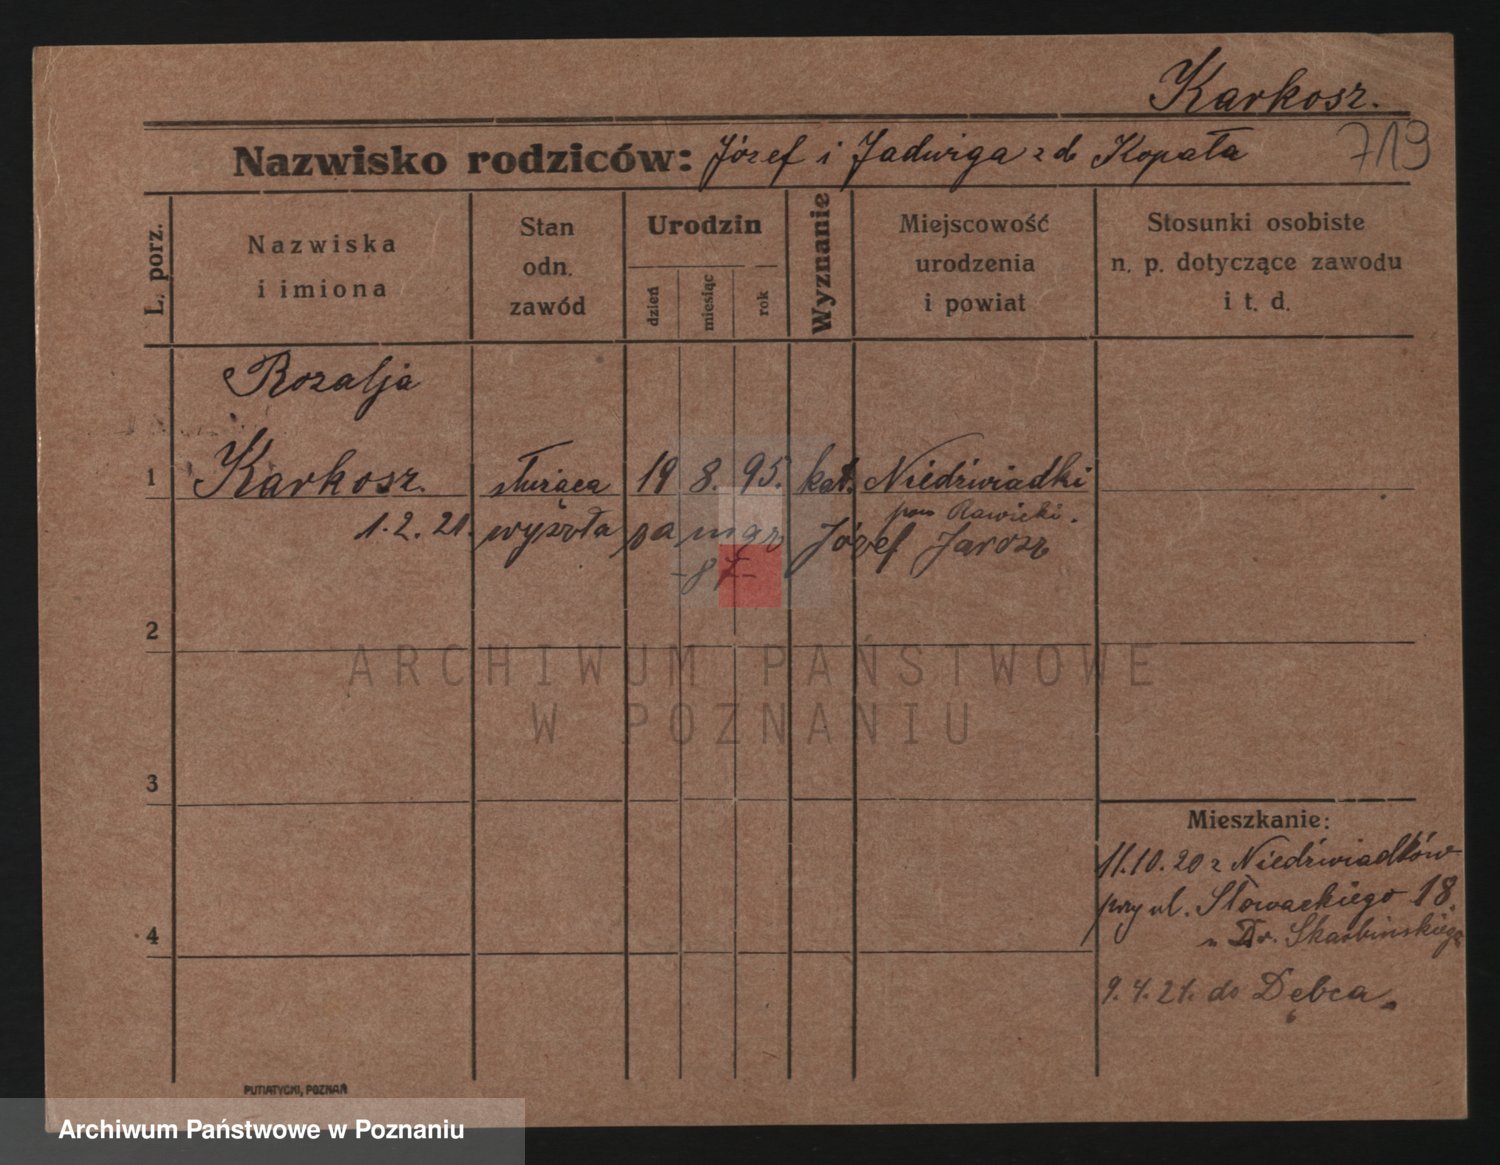 Karkosz.
719
Nazwisko rodziców: Józef i Jadwiga z d. Kopała
L. porz.
Nazwiska
i imiona
Stan
odn.
zawód
Urodzin
dzień
miesiąc
rok
Wyznanie
Miejscowość
urodzenia
i powiat
Stosunki osobiste
n. p. dotyczące zawodu
i t. d.
Rozalja
1 Karkosz. służąca 19 8. 95. kat. Niedźwiadki
pow Rawicki.
1.2.21. wyszła za mąż Józef Jarosz
2
3
4
Mieszkanie:
11.10.20 z Niedźwiadków
przy ul. Słowackiego 18.
u Dr. Skarbińskiego
9.4.21. do Dębca
PUTIATYCKI, POZNAŃ
ARCHIWUM PAŃSTWOWE
W POZNANIU
Archiwum Państwowe w Poznaniu